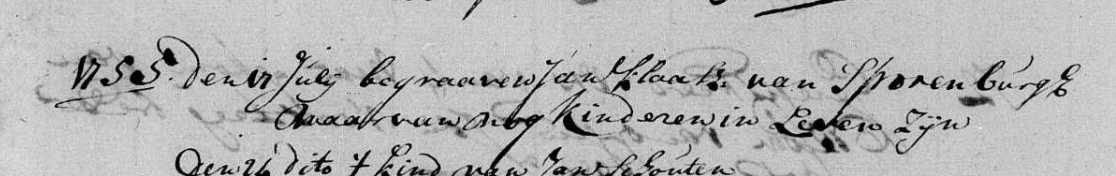 1755. den 17 July begraaven Jan Klaasz. van Sporenburgh
Waar van nog Kinderen in Leven Zyn
den 26 dito 't kind van Jan Schouten